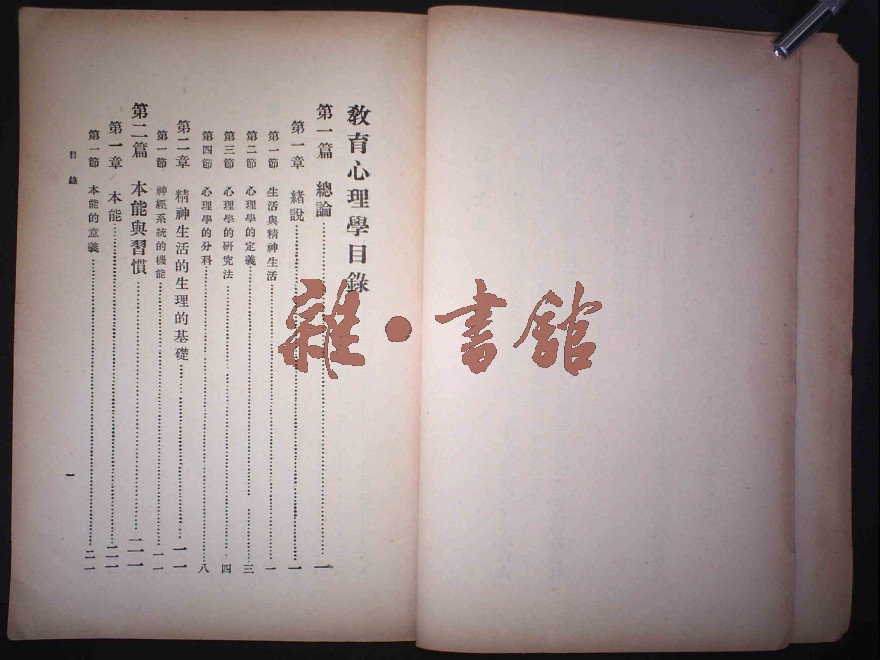 教育心理學目錄
第一篇 總論……一
第一章 緒說……一
第一節 生活與精神生活……一
第二節 心理學的定義……三
第三節 心理學的研究法……四
第四節 心理學的分科……八
第二章 精神生活的生理的基礎……一一
第一節 神經系統的機能……一一
第二篇 本能與習慣……二一一
第一章 本能……二一
第一節 本能的意義……二一
目錄
一
雜·書館